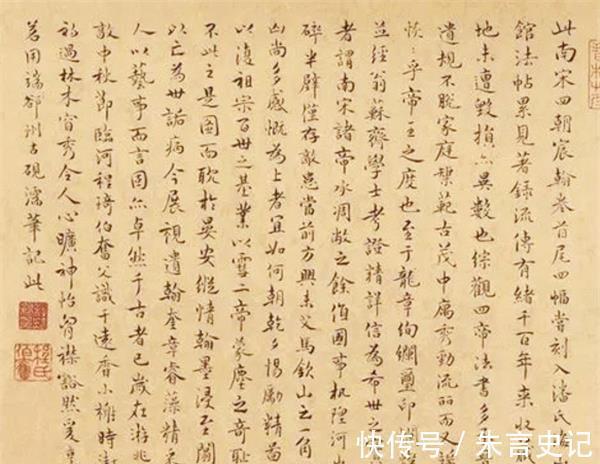 此南宋四朝宸翰卷首尾四幅嘗刻入潘氏
館法帖累見著錄流傳有緒千百年來收
地未遭毀損亦異數也綜觀四帝法書多
遺規不脫家庭榘範古茂中寓秀勁流麗而又
恢恢乎帝王之度也至于龍章絢爛璽印
益經翁蘇齋學士考證精詳信為希世之
者謂南宋諸帝承凋敝之餘值國事杌隉河
碎半壁僅存敵患當前方興未艾馬欽山之一角
山尚多感慨為上者宜如何朝乾夕惕勵精圖
以復祖宗百世之基業以雪二帝蒙塵之奇恥
不此之是圖而耽於晏安縱情翰墨浸至
以亡為世詬病今展視遺翰奎章睿藻精
人以藝事而言固亦卓然于古者已歲在游兆
敦中秋節臨河程琦伯奮父識于遠香小榭時
初過林木窅秀令人心曠神怡胸襟豁然爰
茗用端州古硯濡筆記此
快传号 / 朱言史记